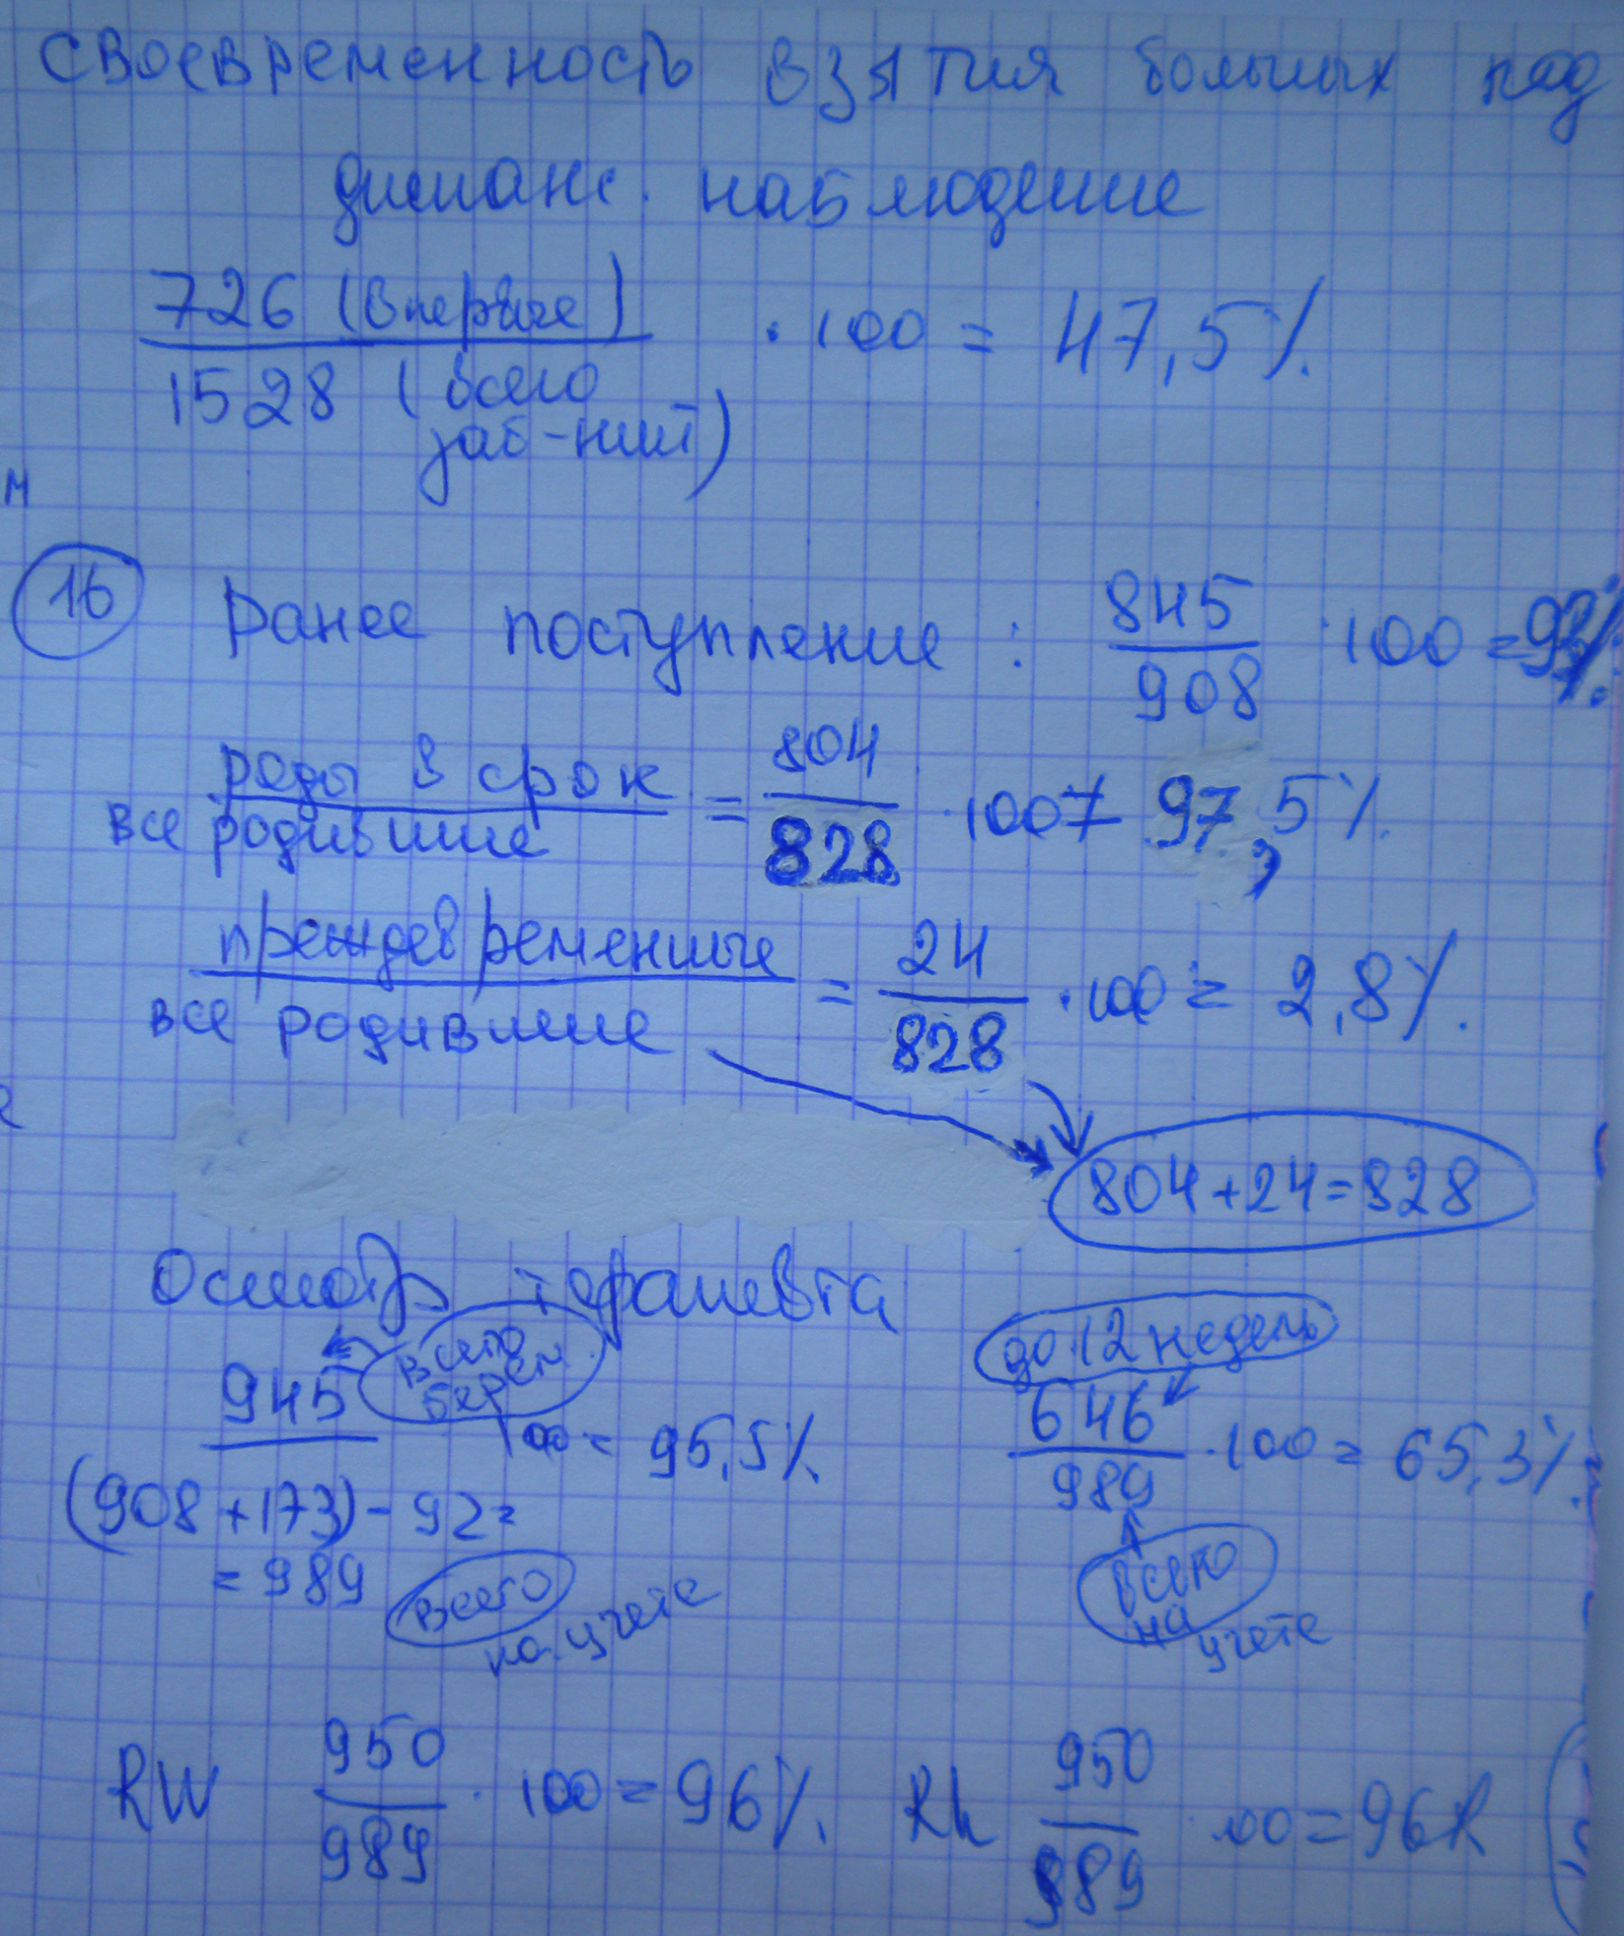 своевременность взятия больных под
диспанс. наблюдение
726 (впервые)
1528 (всего заб-ний) · 100 = 47,5%.
м
16 Ранее поступление : 845 / 908 · 100 = 93%.
роды в срок / все родившие = 804 / 828 · 100 = 97,5%.
преждевременные / все родившие = 24 / 828 · 100 = 2,8%.
804+24=828
Осмотр терапевта
всего берем.
до 12 недель
945 · 100 = 95,5%.
646 / 989 · 100 = 65,3%.
(908+173)-92=
=989 всего на учете
всего на учете
RW 950 / 989 · 100 = 96%.
Rh 950 / 989 · 100 = 96%